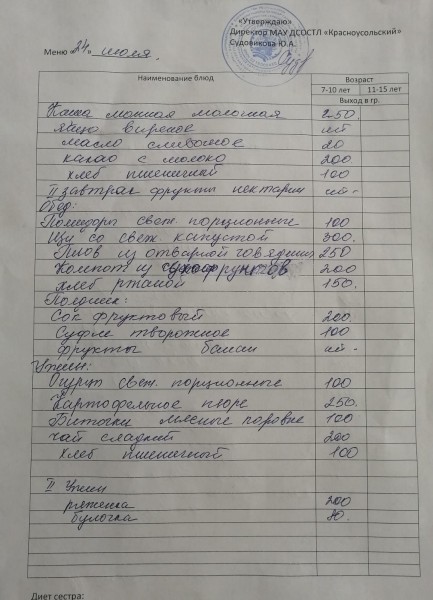 «Утверждаю»
Директор МАУ ДСОСТЛ «Красноусольский»
Меню «24» июля. Судовикова Ю.А.
Наименование блюд Возраст
7-10 лет 11-15 лет
Выход в гр.
Каша манная молочная 250.
яйцо вареное шт
масло сливочное 20
какао с молоко 200
хлеб пшеничный 100
II завтрак фрукты нектарин шт-
Обед:
Помидоры свеж. порционные 100
Щи со свеж. капустой 300.
Плов из отварной говядины 250
Компот из сухофруктов 200
хлеб ржаной 150.
Полдник:
Сок фруктовый 200.
Суфле творожное 100
фрукты банан шт-
Ужин:
Огурцы свеж. порционные 100
Картофельное пюре 250.
Биточки мясные паровые 100
чай сладкий 200
хлеб пшеничный 100
II Ужин
ряженка 200
булочка 80.
Диет сестра: